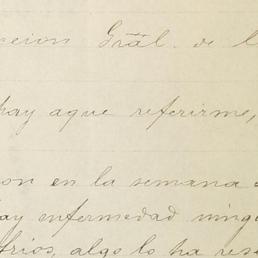 ccion Gral. de l
hay aque referirme,
on en la semana
ay enfermedad ningu
frios, algo lo ha res